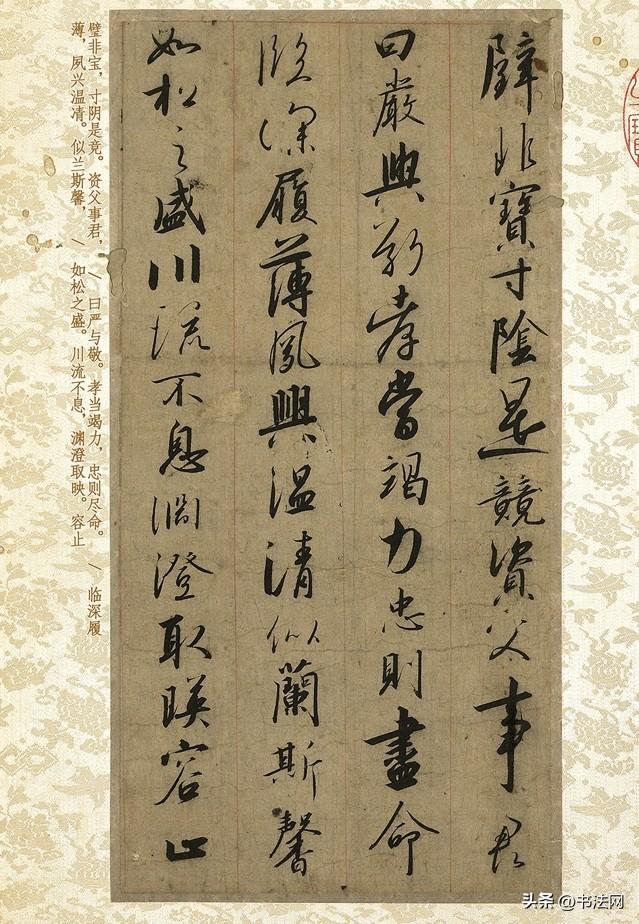 璧非寶寸陰是競資父事君
曰嚴與敬孝當竭力忠則盡命
臨深履薄夙興温清似蘭斯馨
如松之盛川流不息淵澄取暎容止
璧非宝，寸阴是竞。资父事君， \ 曰严与敬。孝当竭力，忠则尽命。 \ 临深履
薄，夙兴温凊。似兰斯馨， \ 如松之盛。川流不息，渊澄取映。容止
头条 @书法网